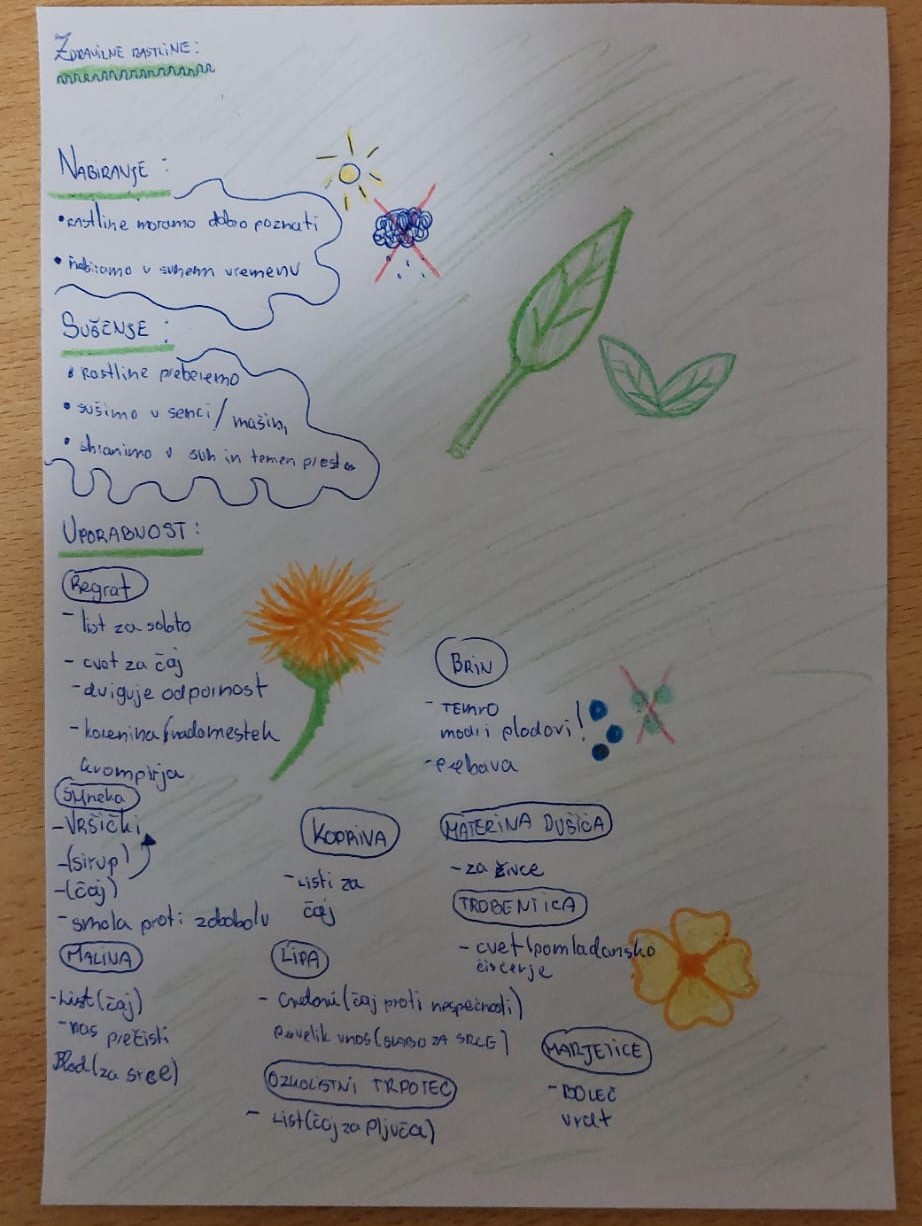 ZDRAVILNE RASTLINE:
NABIRANJE:
• RASTLINE moramo dobro poznati
• Nabiramo v suhem vremenu
SUŠENJE:
• Rastline preberemo
• sušimo v senci/mašini
• shranimo v suh in temen prostor
UPORABNOST:
Regrat
- list za solato
- cvet za čaj
- dviguje odpornost
- korenina/nadomestek
krompirja
Smreka
- VRŠIČKI
- (sirup)
- (čaj)
- smola proti zobobolu
MALINA
- List (čaj)
- nas prečisti
Plod (za srce)
KOPRIVA
- LISTI za
čaj
LIPA
- Cvetovi (čaj proti nespečnosti)
prevelik vnos (SLABO ZA SRCE)
OZKOLISTNI TRPOTEC
- List (čaj za pljuča)
BRIN
- TEMNO
modri plodovi!
- prebava
MATERINA DUŠICA
- za živce
TROBENTICA
- cvet/pomladansko
čiščenje
MARJETICE
- BOLEČ
vrat